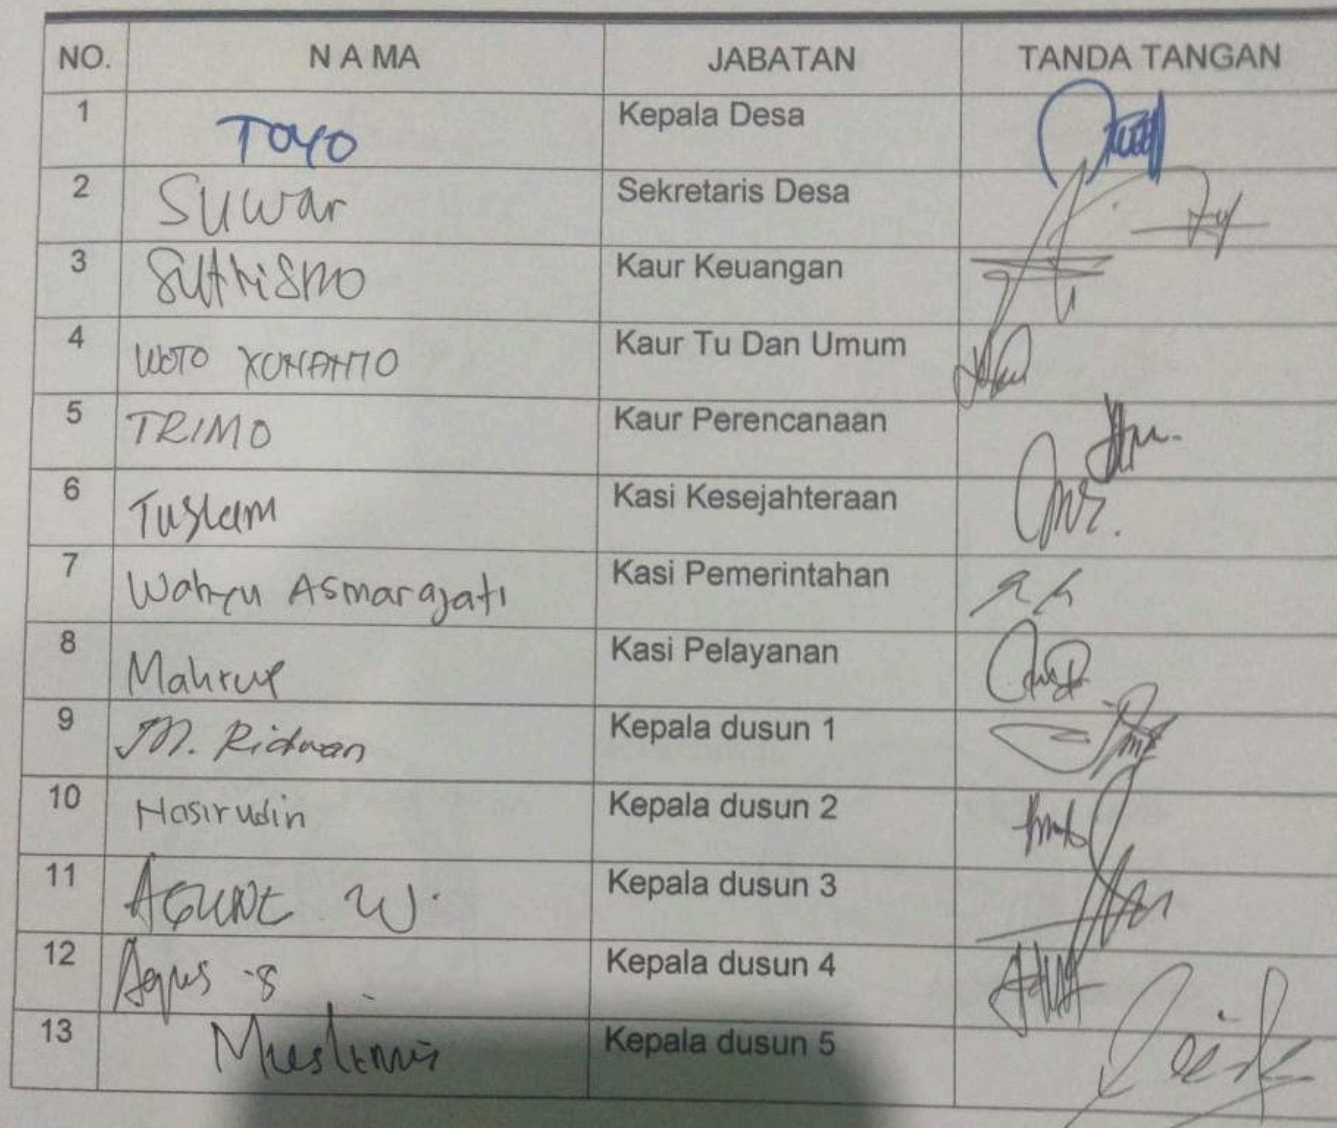 NO. N A M A JABATAN TANDA TANGAN
1 Toyo Kepala Desa
2 Suwar Sekretaris Desa
3 Sutrismo Kaur Keuangan
4 Kaur Tu Dan Umum
5 TRIMO Kaur Perencanaan
6 Tuslam Kasi Kesejahteraan
7 Wahyu Asmaragati Kasi Pemerintahan
8 Mahrup Kasi Pelayanan
9 M. Ridwan Kepala dusun 1
10 Hasirudin Kepala dusun 2
11 W. Kepala dusun 3
12 Agus .s Kepala dusun 4
13 Kepala dusun 5